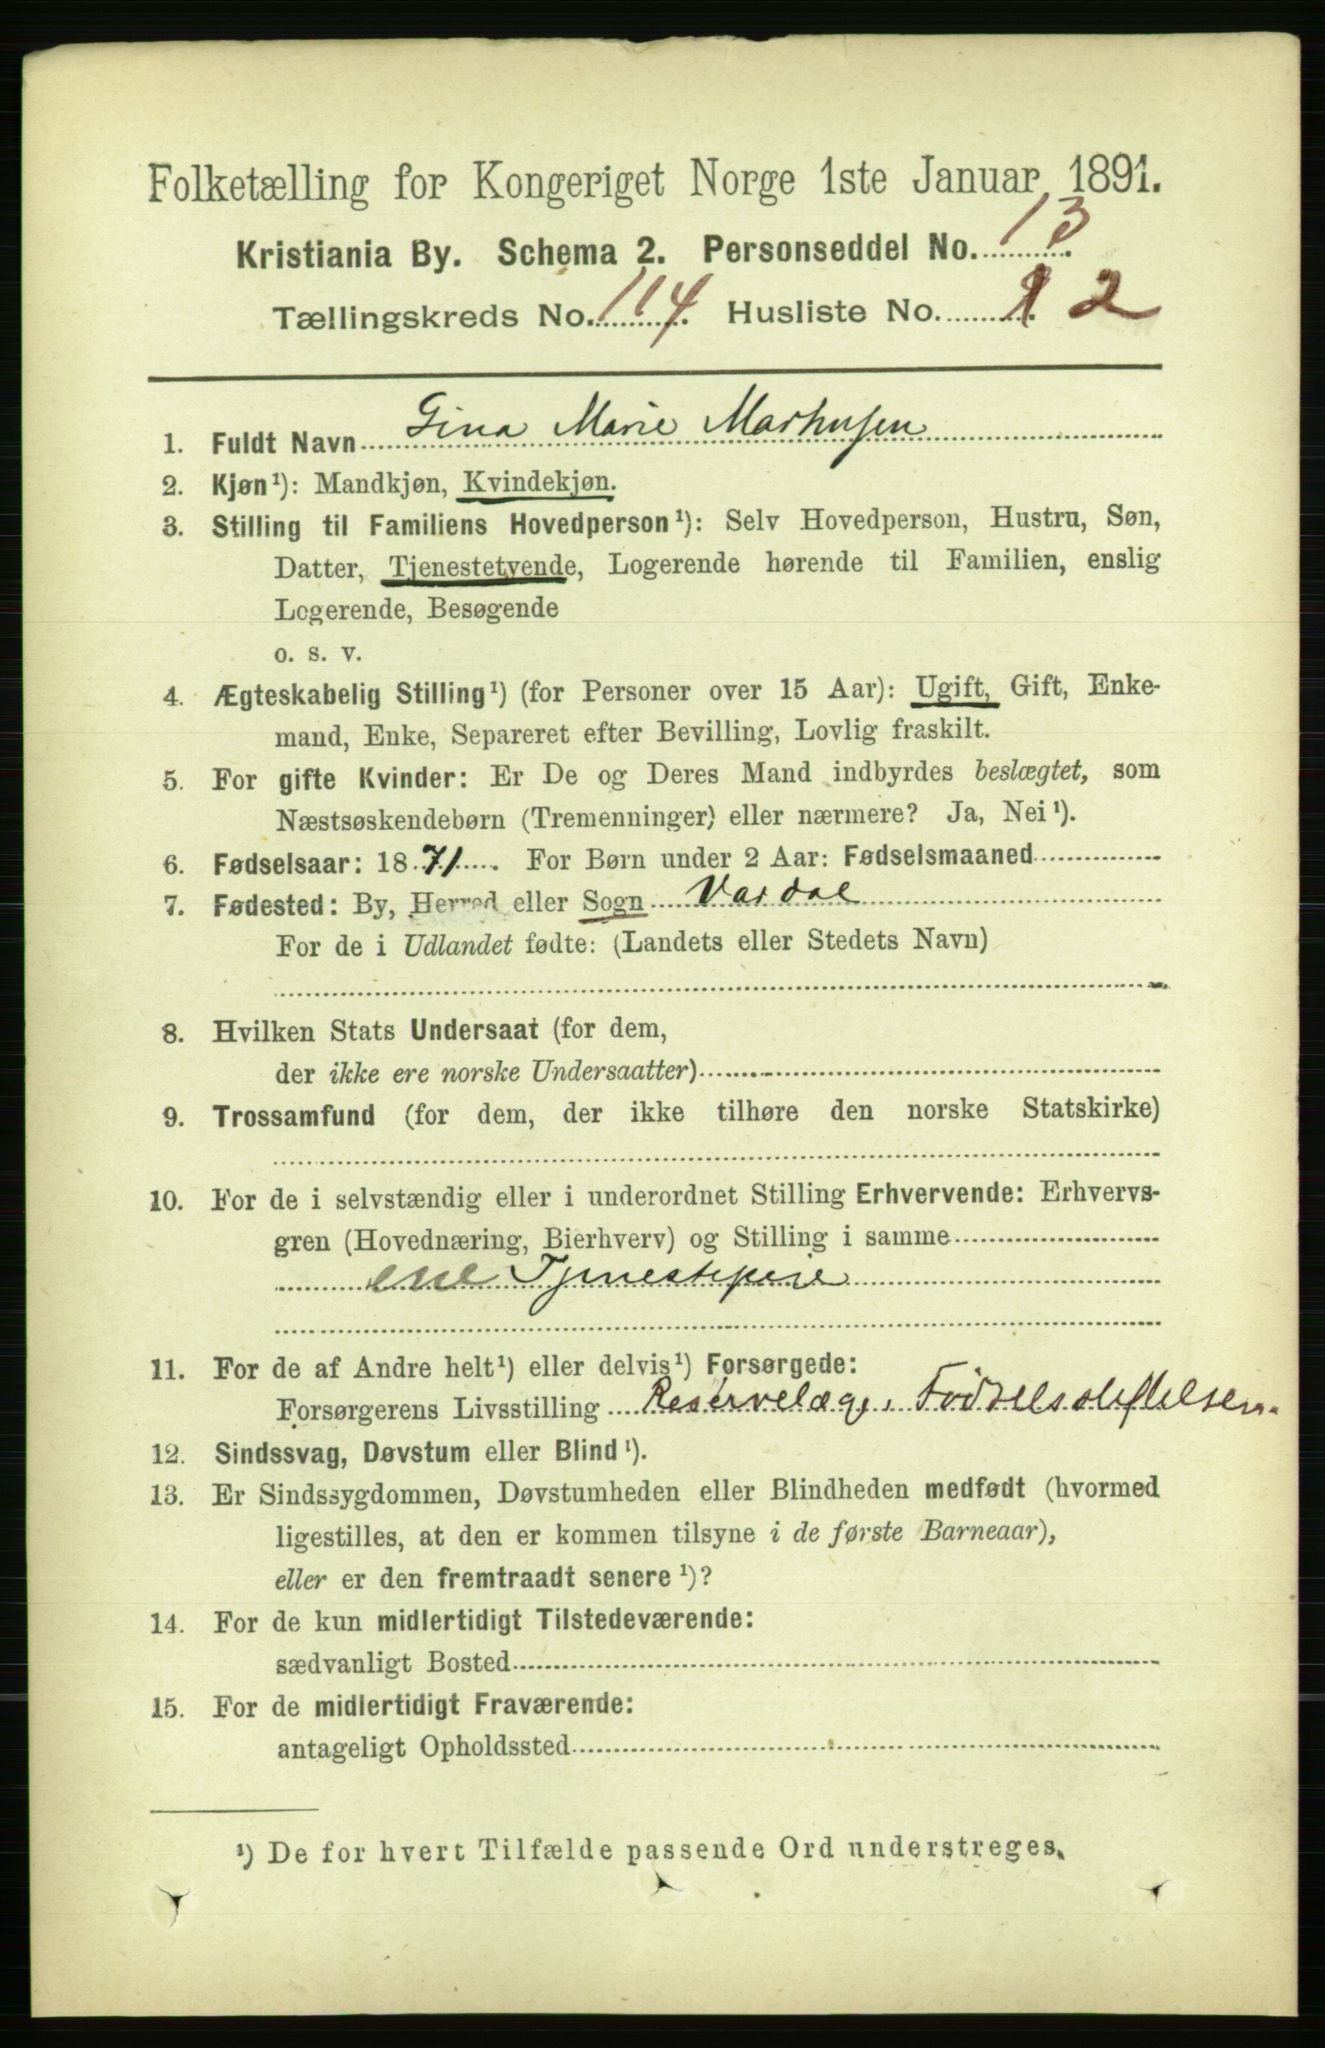 Folketælling for Kongeriget Norge 1ste Januar 1891.
Kristiania By. Schema 2. Personseddel No. 13
Tællingskreds No. 114 Husliste No. 2
1. Fuldt Navn Gina Marie Markusen
2. Kjøn¹): Mandkjøn, Kvindekjøn.
3. Stilling til Familiens Hovedperson¹): Selv Hovedperson, Hustru, Søn,
Datter, Tjenestetyende, Logerende hørende til Familien, enslig
Logerende, Besøgende
o. s. v.
4. Ægteskabelig Stilling¹) (for Personer over 15 Aar): Ugift, Gift, Enke-
mand, Enke, Separeret efter Bevilling, Lovlig fraskilt.
5. For gifte Kvinder: Er De og Deres Mand indbyrdes beslægtet, som
Næstsøskendebørn (Tremenninger) eller nærmere? Ja, Nei¹).
6. Fødselsaar: 1871. For Børn under 2 Aar: Fødselsmaaned
7. Fødested: By, Herred eller Sogn Vardal
For de i Udlandet fødte: (Landets eller Stedets Navn)
8. Hvilken Stats Undersaat (for dem,
der ikke ere norske Undersaatter)
9. Trossamfund (for dem, der ikke tilhøre den norske Statskirke)
10. For de i selvstændig eller i underordnet Stilling Erhvervende: Erhvervs-
gren (Hovednæring, Bierhverv) og Stilling i samme
ene Tjenestepige
11. For de af Andre helt¹) eller delvis¹) Forsørgede:
Forsørgerens Livsstilling Reservelæge, Födselsstiftelsen.
12. Sindssvag, Døvstum eller Blind¹).
13. Er Sindssygdommen, Døvstumheden eller Blindheden medfødt (hvormed
ligestilles, at den er kommen tilsyne i de første Barneaar),
eller er den fremtraadt senere¹)?
14. For de kun midlertidigt Tilstedeværende:
sædvanligt Bosted
15. For de midlertidigt Fraværende:
antageligt Opholdssted
¹) De for hvert Tilfælde passende Ord understreges.